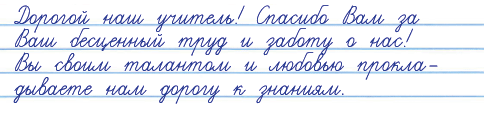 Дорогой наш учитель! Спасибо Вам за
Ваш бесценный труд и заботу о нас!
Вы своим талантом и любовью прокла-
дываете нам дорогу к знаниям.